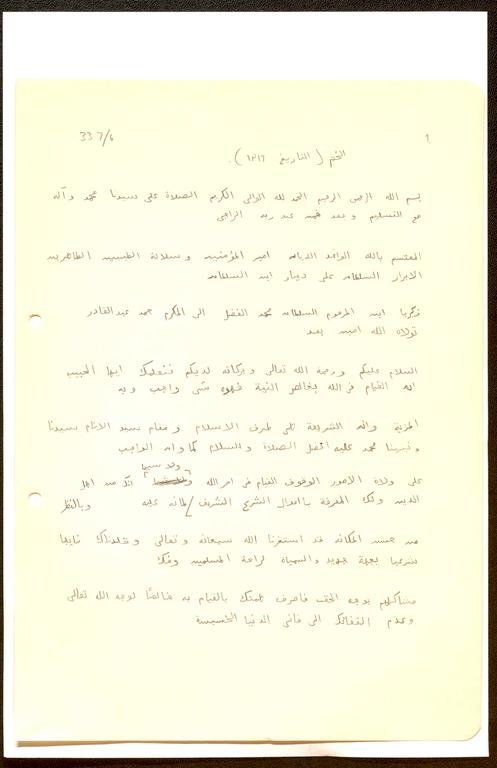 33 7/6
1
الختم ( التاريخ ١٢١٦ ) .
بسم الله الرحمن الرحيم الحمد لله الوالي الكريم الصلاة على سيدنا محمد وآله
مع التسليم وبعد فمن عبد ربه الراجي
المعتصم بالله الواحد الديان امير المؤمنين وسلالة الطيبين الطاهرين
الابرار السلطان علي دينار ابن السلطان
زكريا ابن المرحوم السلطان محمد الفضل الى المكرم حمد عبدالقادر
تولاه الله امين بعد
السلام عليكم ورحمة الله تعالى وبركاته لديكم فنعلمك ايها الحبيب
ان القيام في الله بخالص النية فهو شى واجب وبه
المزية وانه الشريعة هي طرف الاسلام ومقام سيد الانام سيدنا
ونبينا محمد عليه افضل الصلاة والسلام كما وان الواجب
على ولاة الامور الوقوف القيام في امر الله ولا سيما انك من اهل
الدين ولك المعرفة باحوال الشرع الشريف / لمانه عليه وبالنظر
من حسن المكانه قد استخرنا الله سبحانه وتعالى وقلدناك نايبا
شرعيا بجهة جديد والسمياة لراحة المسلمين وفك
مشاكلهم بوجه الحق فاصرف همتك بالقيام به خالصًا لوجه الله تعالى
وعدم التفاتك الى فانى الدنيا الخسيسة